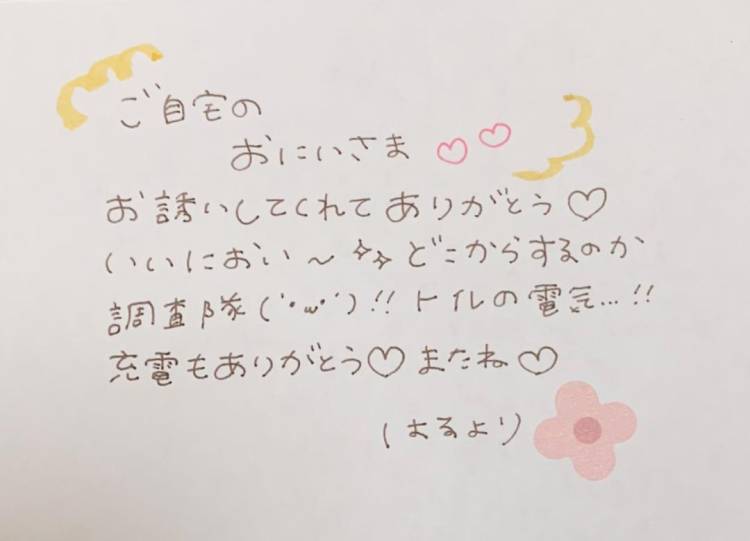 ご自宅の
おにいさま ♡♡
お誘いしてくれてありがとう♡
いいにおい〜✧✧どこからするのか
調査隊(´・ω・`)!!トイレの電気...!!
充電もありがとう♡またね♡
はるより